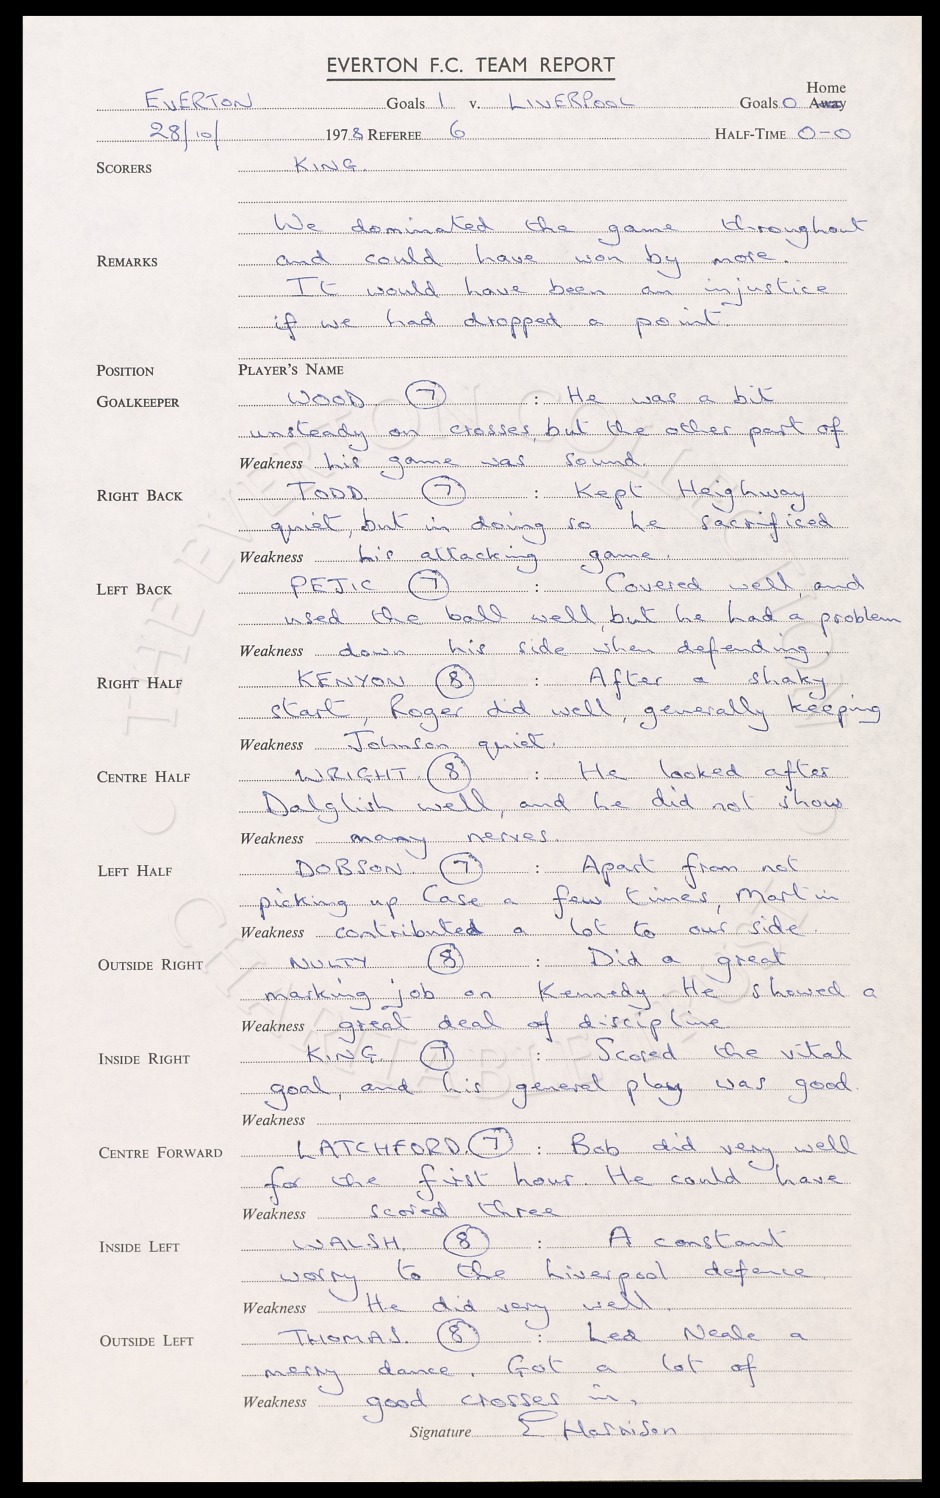 EVERTON F.C. TEAM REPORT
Home
EVERTON Goals 1 v. LIVERPOOL Goals 0 Away
28/10/ 1978 REFEREE 6 HALF-TIME 0-0
SCORERS KING.
We dominated the game throughout
REMARKS and could have won by more.
It would have been an injustice
if we had dropped a point.
POSITION PLAYER'S NAME
GOALKEEPER WOOD 7 : He was a bit
unsteady on crosses, but the other part of
Weakness his game was sound.
RIGHT BACK TODD. 7 : Kept Heighway
quiet, but in doing so he sacrificed
Weakness his attacking game.
LEFT BACK PEJIC 7 : Covered well, and
used the ball well, but he had a problem
Weakness down his side when defending.
RIGHT HALF KENYON 8 : After a shaky
start, Roger did well, generally keeping
Weakness Johnson quiet.
CENTRE HALF WRIGHT. 8 : He looked after
Dalglish well, and he did not show
Weakness many nerves.
LEFT HALF DOBSON. 7 : Apart from not
picking up Case a few times, Martin
Weakness contributed a lot to our side.
OUTSIDE RIGHT NULTY 8 : Did a great
marking job on Kennedy. He showed a
Weakness great deal of discipline.
INSIDE RIGHT KING. 7 : Scored the vital
goal, and his general play was good.
Weakness
CENTRE FORWARD LATCHFORD. 7 : Bob did very well
for the first hour. He could have
Weakness scored three
INSIDE LEFT WALSH. 8 : A constant
worry to the Liverpool defence.
Weakness He did very well.
OUTSIDE LEFT THOMAS. 8 : Led Neale a
merry dance. Got a lot of
Weakness good crosses in.
Signature E Harrison
THE EVERTON COLLECTION
CHARITABLE TRUST